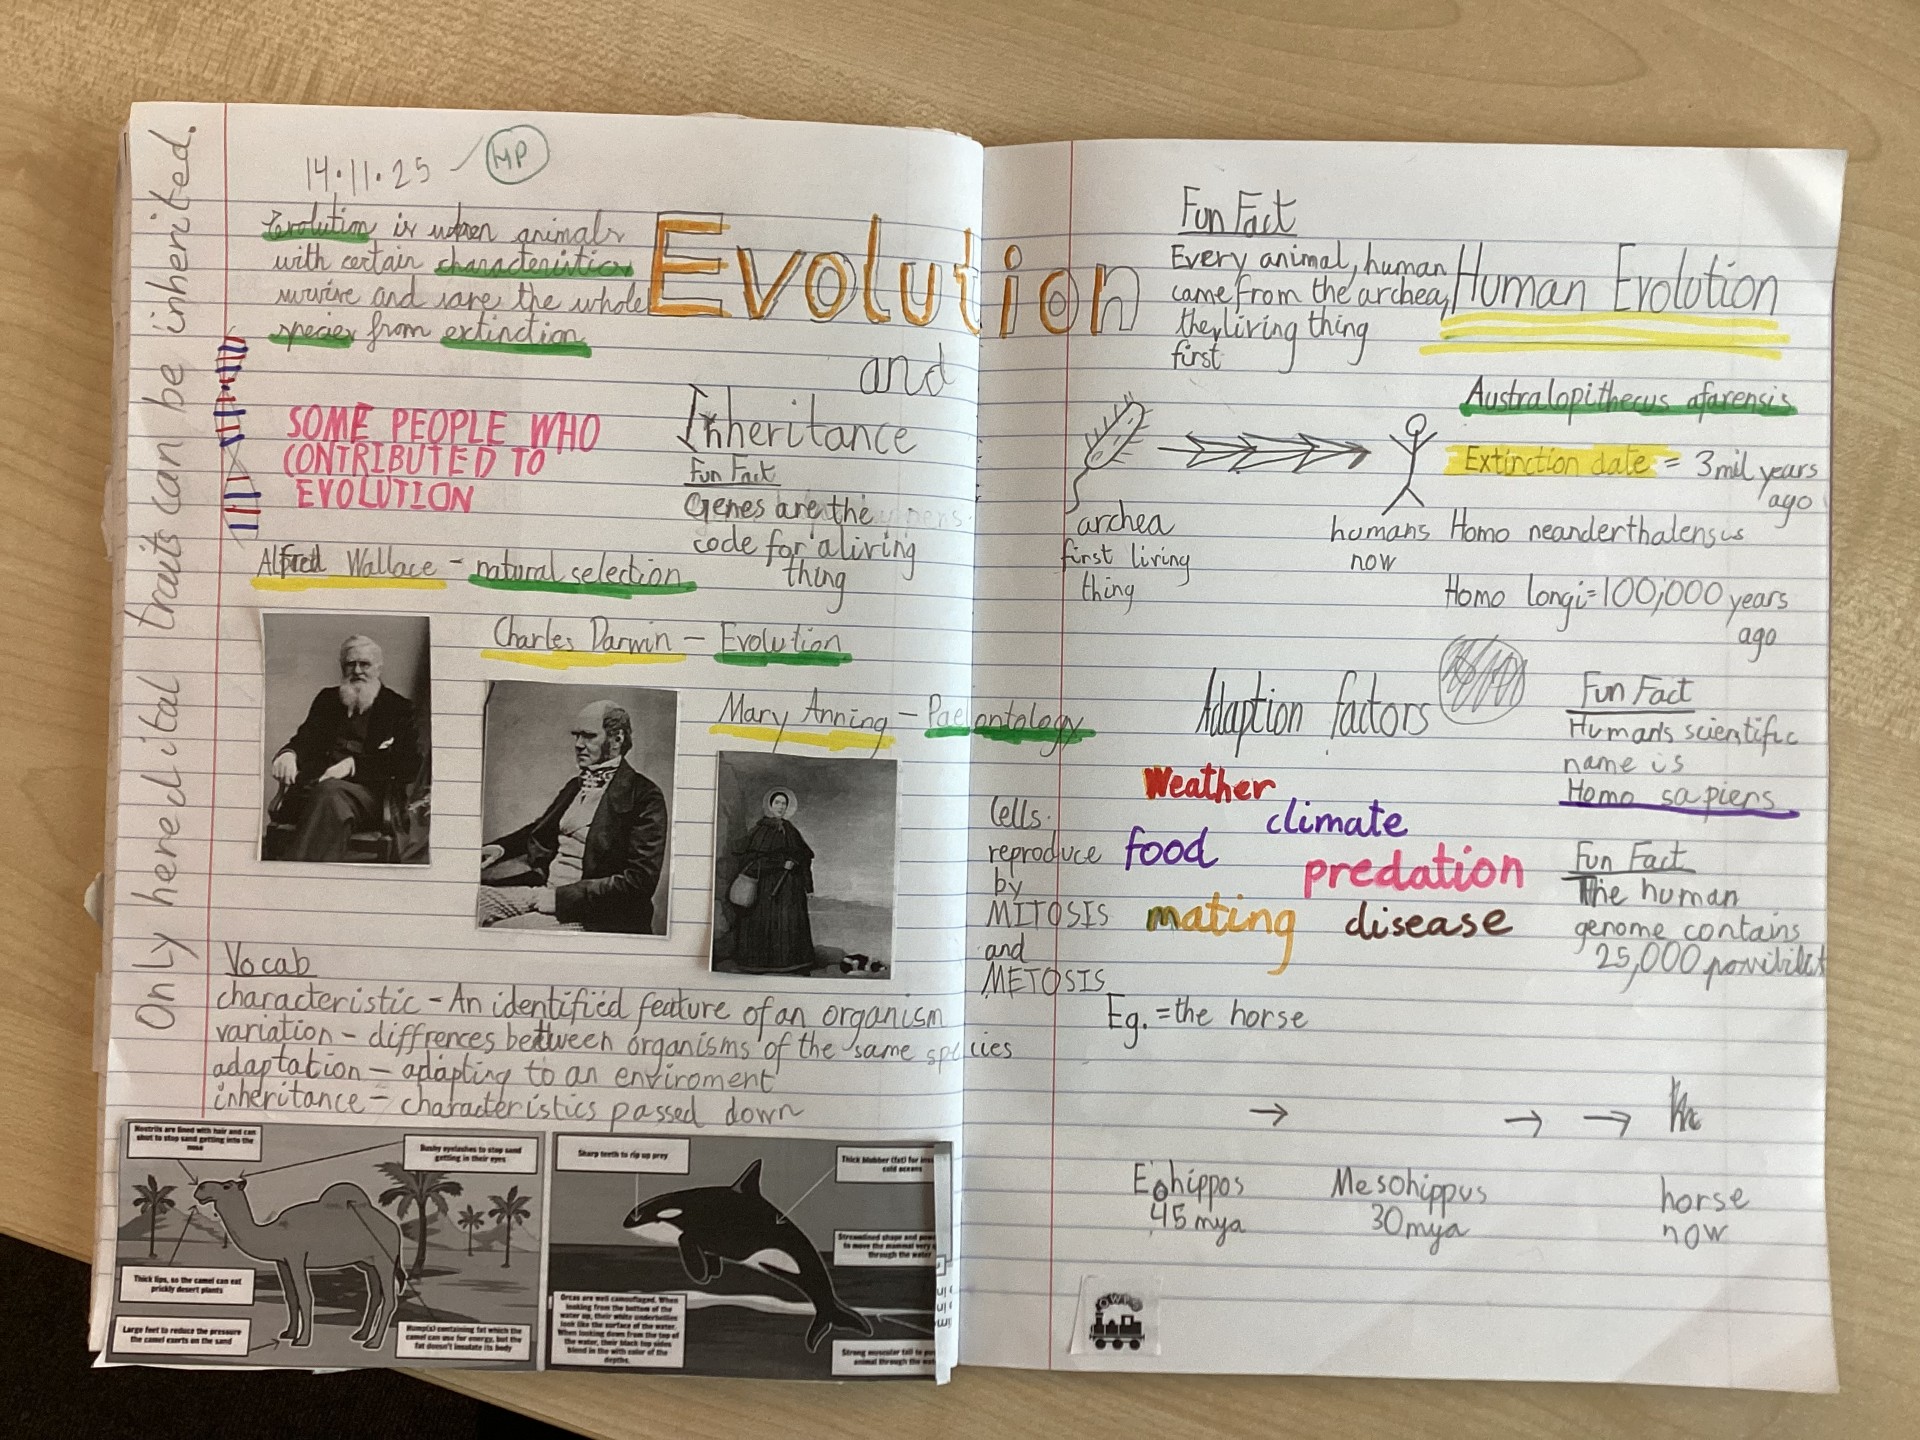 Only heredital traits can be inherited.
14.11.25
MP
Evolution is when animals
with certain characteristics
survive and save the whole
species from extinction
Evolution
and
Inheritance
SOME PEOPLE WHO
CONTRIBUTED TO
EVOLUTION
Fun Fact
Genes are the
code for a living
thing
Alfred Wallace - natural selection
Charles Darwin - Evolution
Mary Anning - Paelontology
Vocab
characteristic - An identified feature of an organism
variation - diffrences between organisms of the same species
adaptation - adapting to an enviroment
inheritance - characteristics passed down
Nostrils are lined with hair and can
shut to stop sand getting into the
nose
Bushy eyelashes to stop sand
getting in their eyes
Thick lips, so the camel can eat
prickly desert plants
Large feet to reduce the pressure
the camel exerts on the sand
Hump(s) containing fat which the
camel can use for energy, but the
fat doesn't insulate its body
Sharp teeth to rip up prey
Thick blubber (fat) for
cold oceans
Streamlined shape and
to move the mammal very
through the water
Orcas are well camouflaged. When
looking from the bottom of the
water up, their white underbellies
look like the surface of the water.
When looking down from the top of
the water, their black top sides
blend in the with color of the
depths.
Strong muscular tail to
animal through the
Fun Fact
Every animal, human
came from the archea,
the living thing
first
Human Evolution
Australopithecus afarensis
Extinction date = 3mil years
ago
archea
first living
thing
humans
now
Homo neanderthalensis
Homo longi=100,000 years
ago
Adaption factors
Weather
climate
food
predation
mating
disease
Cells
reproduce
by
MITOSIS
and
METOSIS
Fun Fact
Humans scientific
name is
Homo sapiens
Fun Fact
The human
genome contains
25,000
Eg. = the horse
Eohippos
45 mya
Mesohippus
30mya
horse
now
OWPS